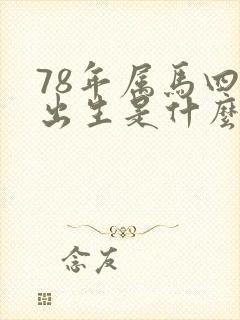 78年属馬四
出生是什麼
念友